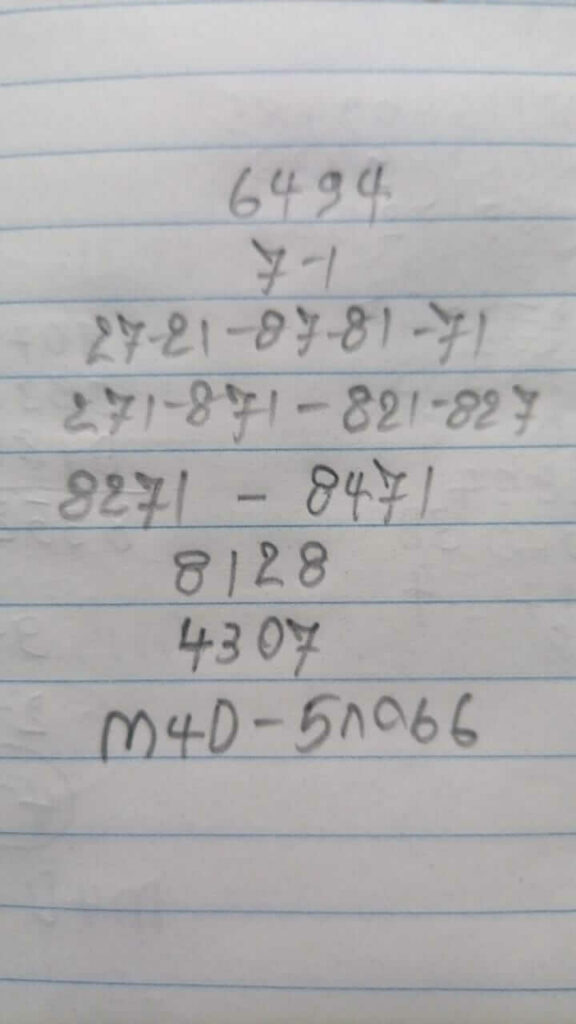 6494
7-1
27-21-87-81-71
271-871-821-827
8271 - 8471
8128
4307